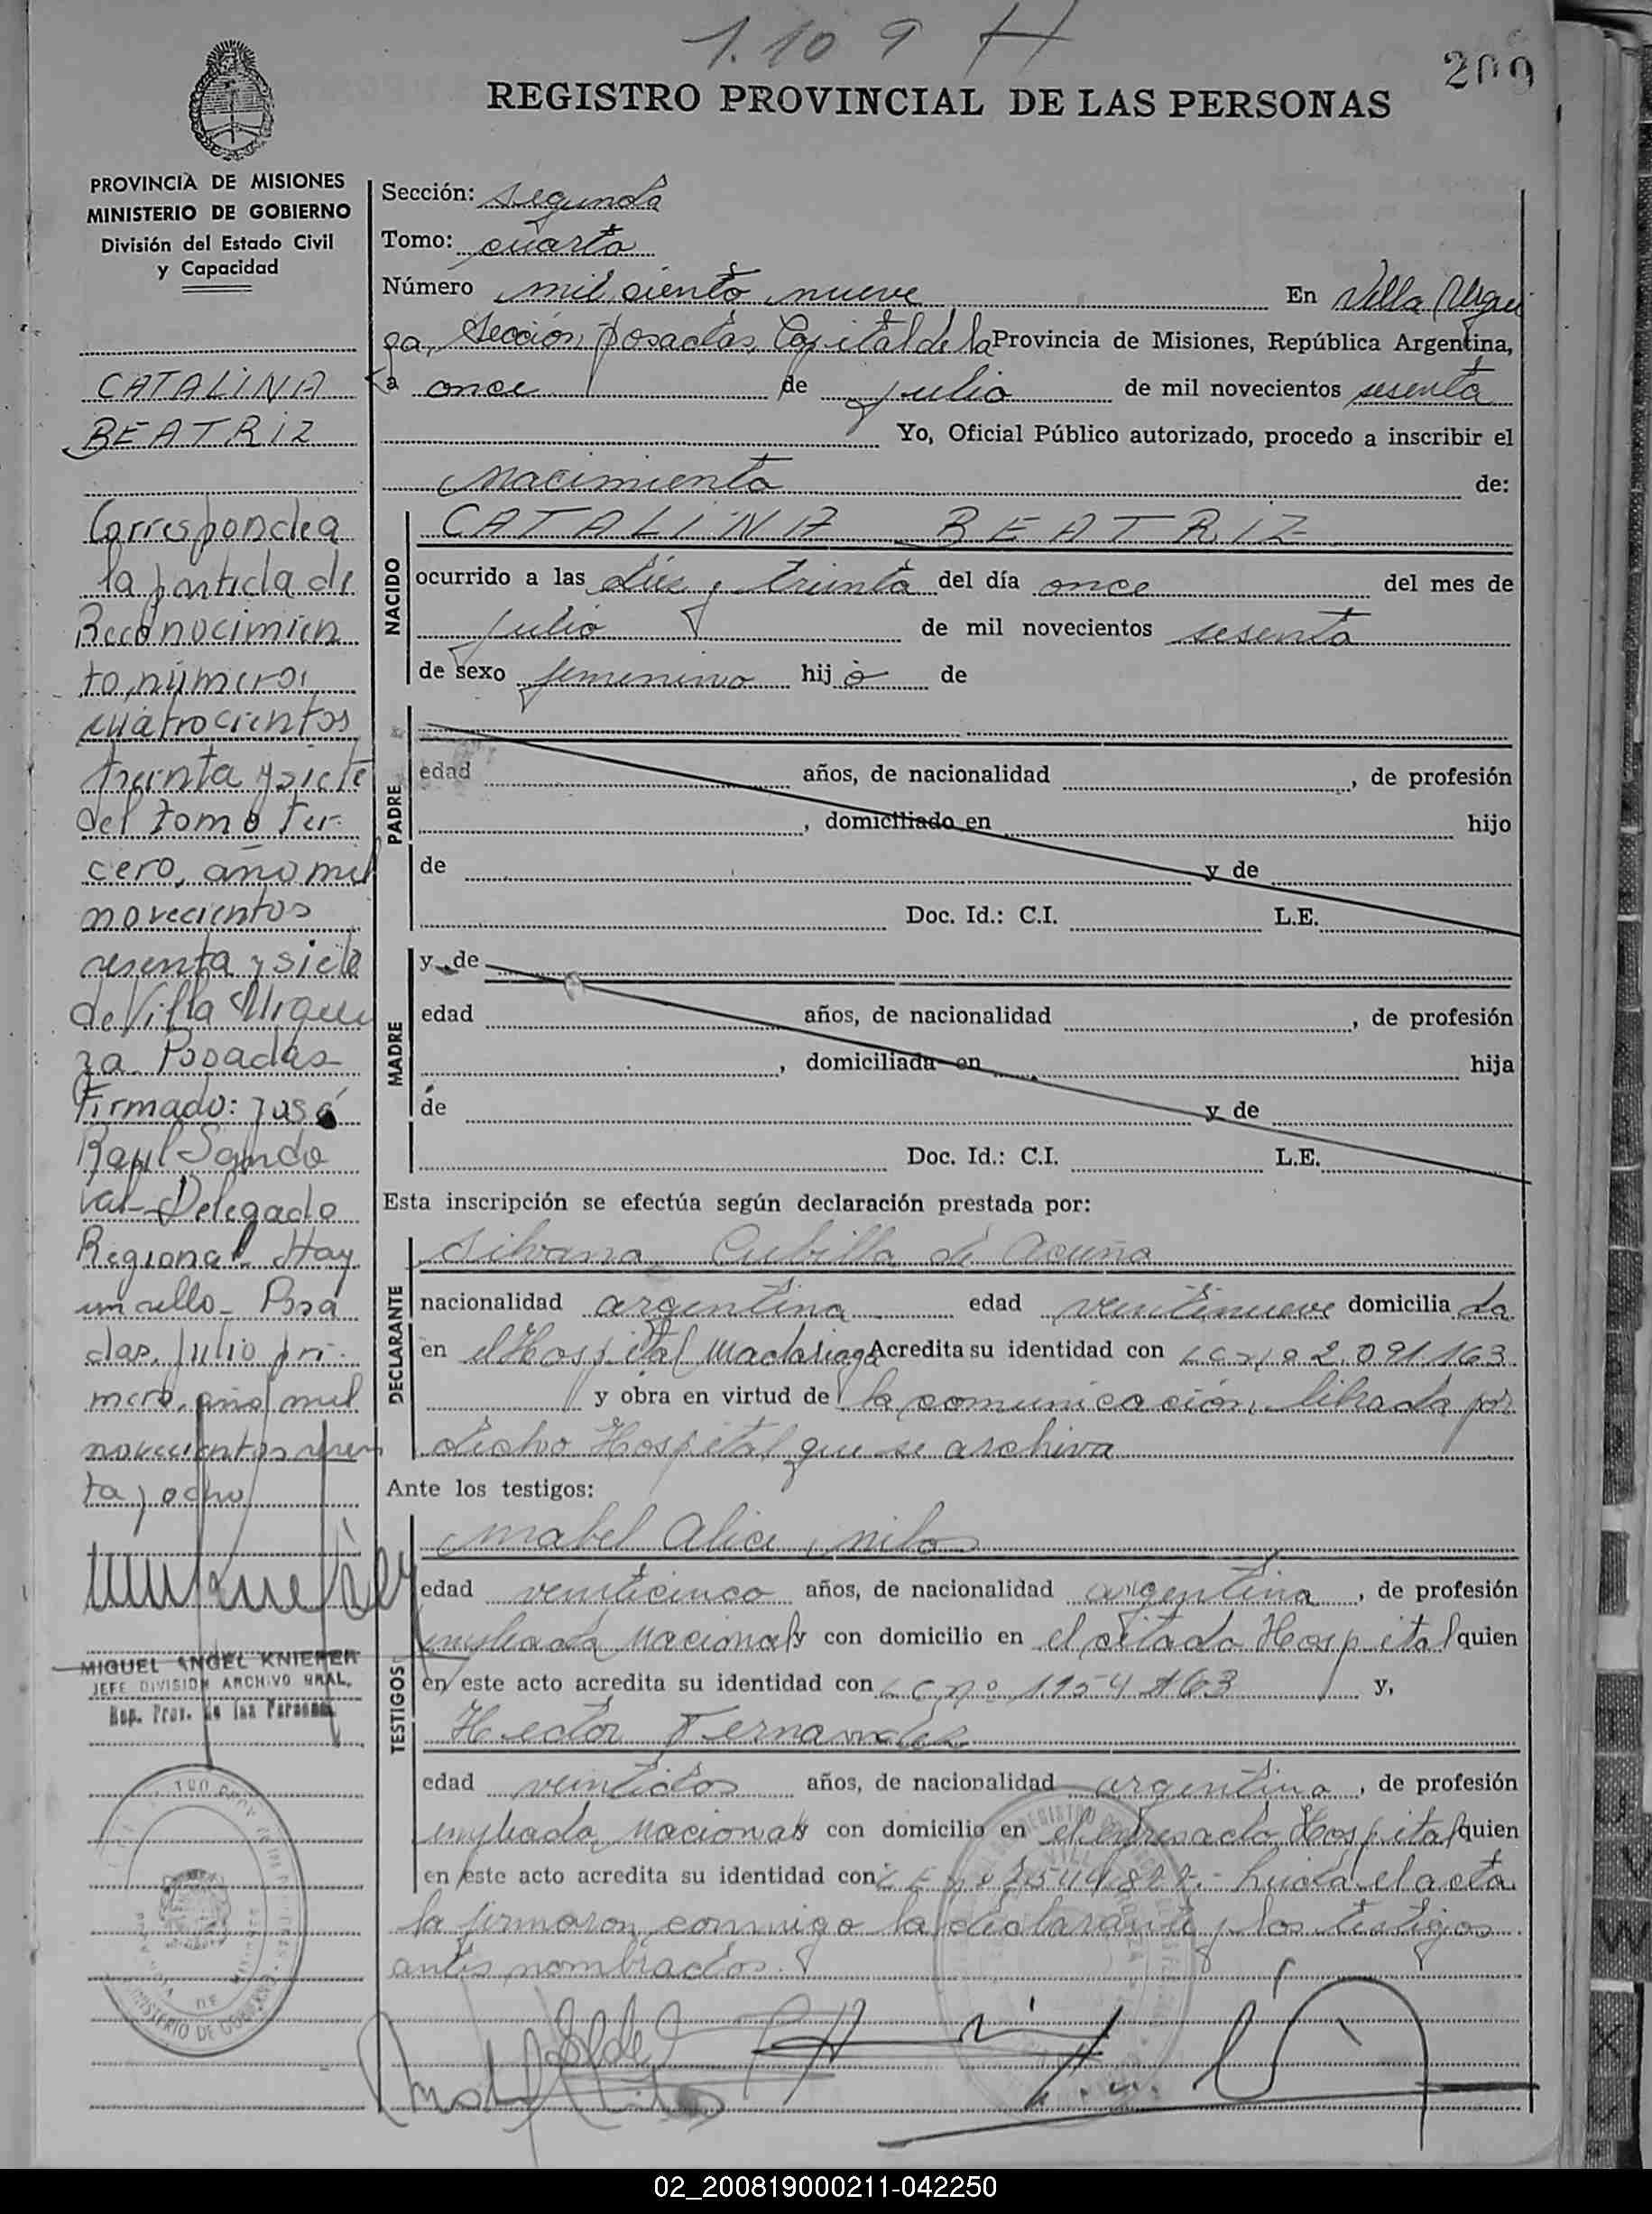 1.109 H
209
REGISTRO PROVINCIAL DE LAS PERSONAS
PROVINCIA DE MISIONES
MINISTERIO DE GOBIERNO
División del Estado Civil
y Capacidad
CATALINA
BEATRIZ
Corresponde a
la partida de
Reconocimien
to, número:
cuatrocientos
treinta y siete
del tomo ter-
cero, año mil
novecientos
sesenta y siete
de Villa Urqui
za. Posadas-
Firmado: José
Raul Sando
val- Delegado
Regional. Hay
un sello- Posa
das, Julio pri-
mero, año mil
novecientos sesen
ta y ocho
MIGUEL ANGEL KNIEPER
JEFE DIVISION ARCHIVO GRAL.
Rep. Prov. de las Personas
MINISTERIO DE GOBIERNO
Sección: segunda
Tomo: cuarto
Número mil ciento nueve En Villa Urqui
za, Sección Posadas, Capital de la Provincia de Misiones, República Argentina,
a once de julio de mil novecientos sesenta
Yo, Oficial Público autorizado, procedo a inscribir el
nacimiento de:
NACIDO
CATALINA BEATRIZ
ocurrido a las diez y treinta del día once del mes de
julio de mil novecientos sesenta
de sexo femenino hij a de
PADRE
edad años, de nacionalidad , de profesión
, domiciliado en hijo
de y de
Doc. Id.: C.I. L.E.
MADRE
y de
edad años, de nacionalidad , de profesión
, domiciliada en hija
de y de
Doc. Id.: C.I. L.E.
Esta inscripción se efectúa según declaración prestada por:
DECLARANTE
Silvana Cubilla de Acuña
nacionalidad argentina edad veintinueve domicilia da
en el Hospital Madariaga Acredita su identidad con L C nº 2.091.163
y obra en virtud de la comunicación librada por
dicho Hospital que se archiva
Ante los testigos:
TESTIGOS
Mabel Alice
edad veinticinco años, de nacionalidad argentina , de profesión
empleada nacional y con domicilio en el citado Hospital quien
en este acto acredita su identidad con L C nº y,
Hector Fernandez
edad veintidos años, de nacionalidad argentino , de profesión
empleado nacional y con domicilio en el expresado Hospital quien
en este acto acredita su identidad con L E nº - Leida el acta
la firmaron conmigo la declarante y los testigos
antes nombrados.
02_200819000211-042250